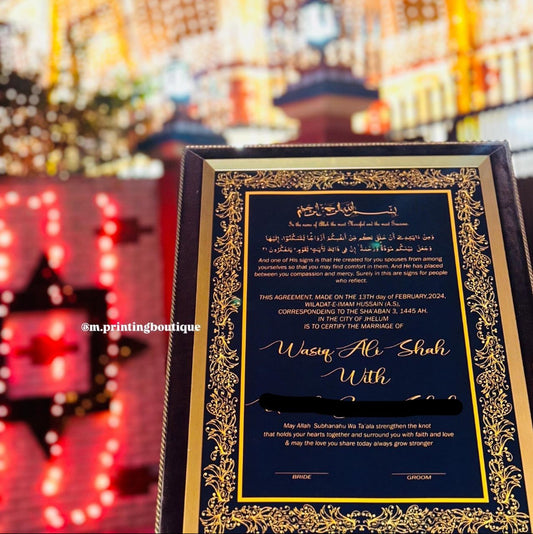 بسم الله الرحمن الرحيم
In the name of Allah the most Merciful and the most Gracious.
وَمِنْ ءَايَـٰتِهِۦٓ أَنْ خَلَقَ لَكُم مِّنْ أَنفُسِكُمْ أَزْوَٰجًا لِّتَسْكُنُوٓا۟ إِلَيْهَا
وَجَعَلَ بَيْنَكُم مَّوَدَّةً وَرَحْمَةً ۚ إِنَّ فِى ذَٰلِكَ لَـَٔايَـٰتٍ لِّقَوْمٍ يَتَفَكَّرُونَ ٢١
And one of His signs is that He created for you spouses from among
yourselves so that you may find comfort in them. And He has placed
between you compassion and mercy. Surely in this are signs for people
who reflect.
THIS AGREEMENT, MADE ON THE 13th day of FEBRUARY,2024,
WILADAT-E-IMAM HUSSAIN (A.S),
CORRESPONDEING TO THE SHA'ABAN 3, 1445 AH.
IN THE CITY OF JHELUM
IS TO CERTIFY THE MARRIAGE OF
@m.printingboutique
Wasiq Ali Shah
With
May Allah Subhanahu Wa Ta'ala strengthen the knot
that holds your hearts together and surround you with faith and love
& may the love you share today always grow stronger
BRIDE
GROOM